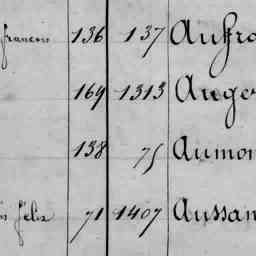 francois 136 137 Aufro
169 1313 Auge
138 75 Aumon
is félix 71 1407 Aussan